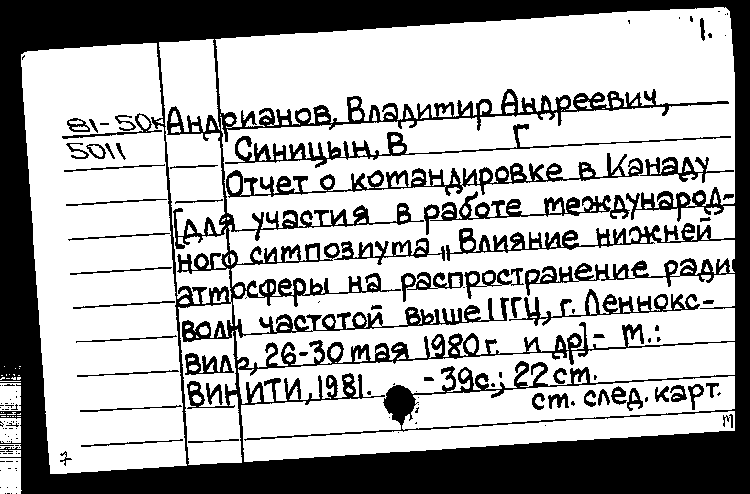 1.
81-50к Андрианов, Владимир Андреевич,
5011 Синицын, В Г
Отчет о командировке в Канаду
[для участия в работе международ-
ного симпозиума „Влияние нижней
атмосферы на распространение ради
волн частотой выше 1 ГГц, г. Леннокс-
виль, 26-30 мая 1980г. и др].- М.:
ВИНИТИ, 1981. - 39с.; 22 см.
см. след. карт.
М
7